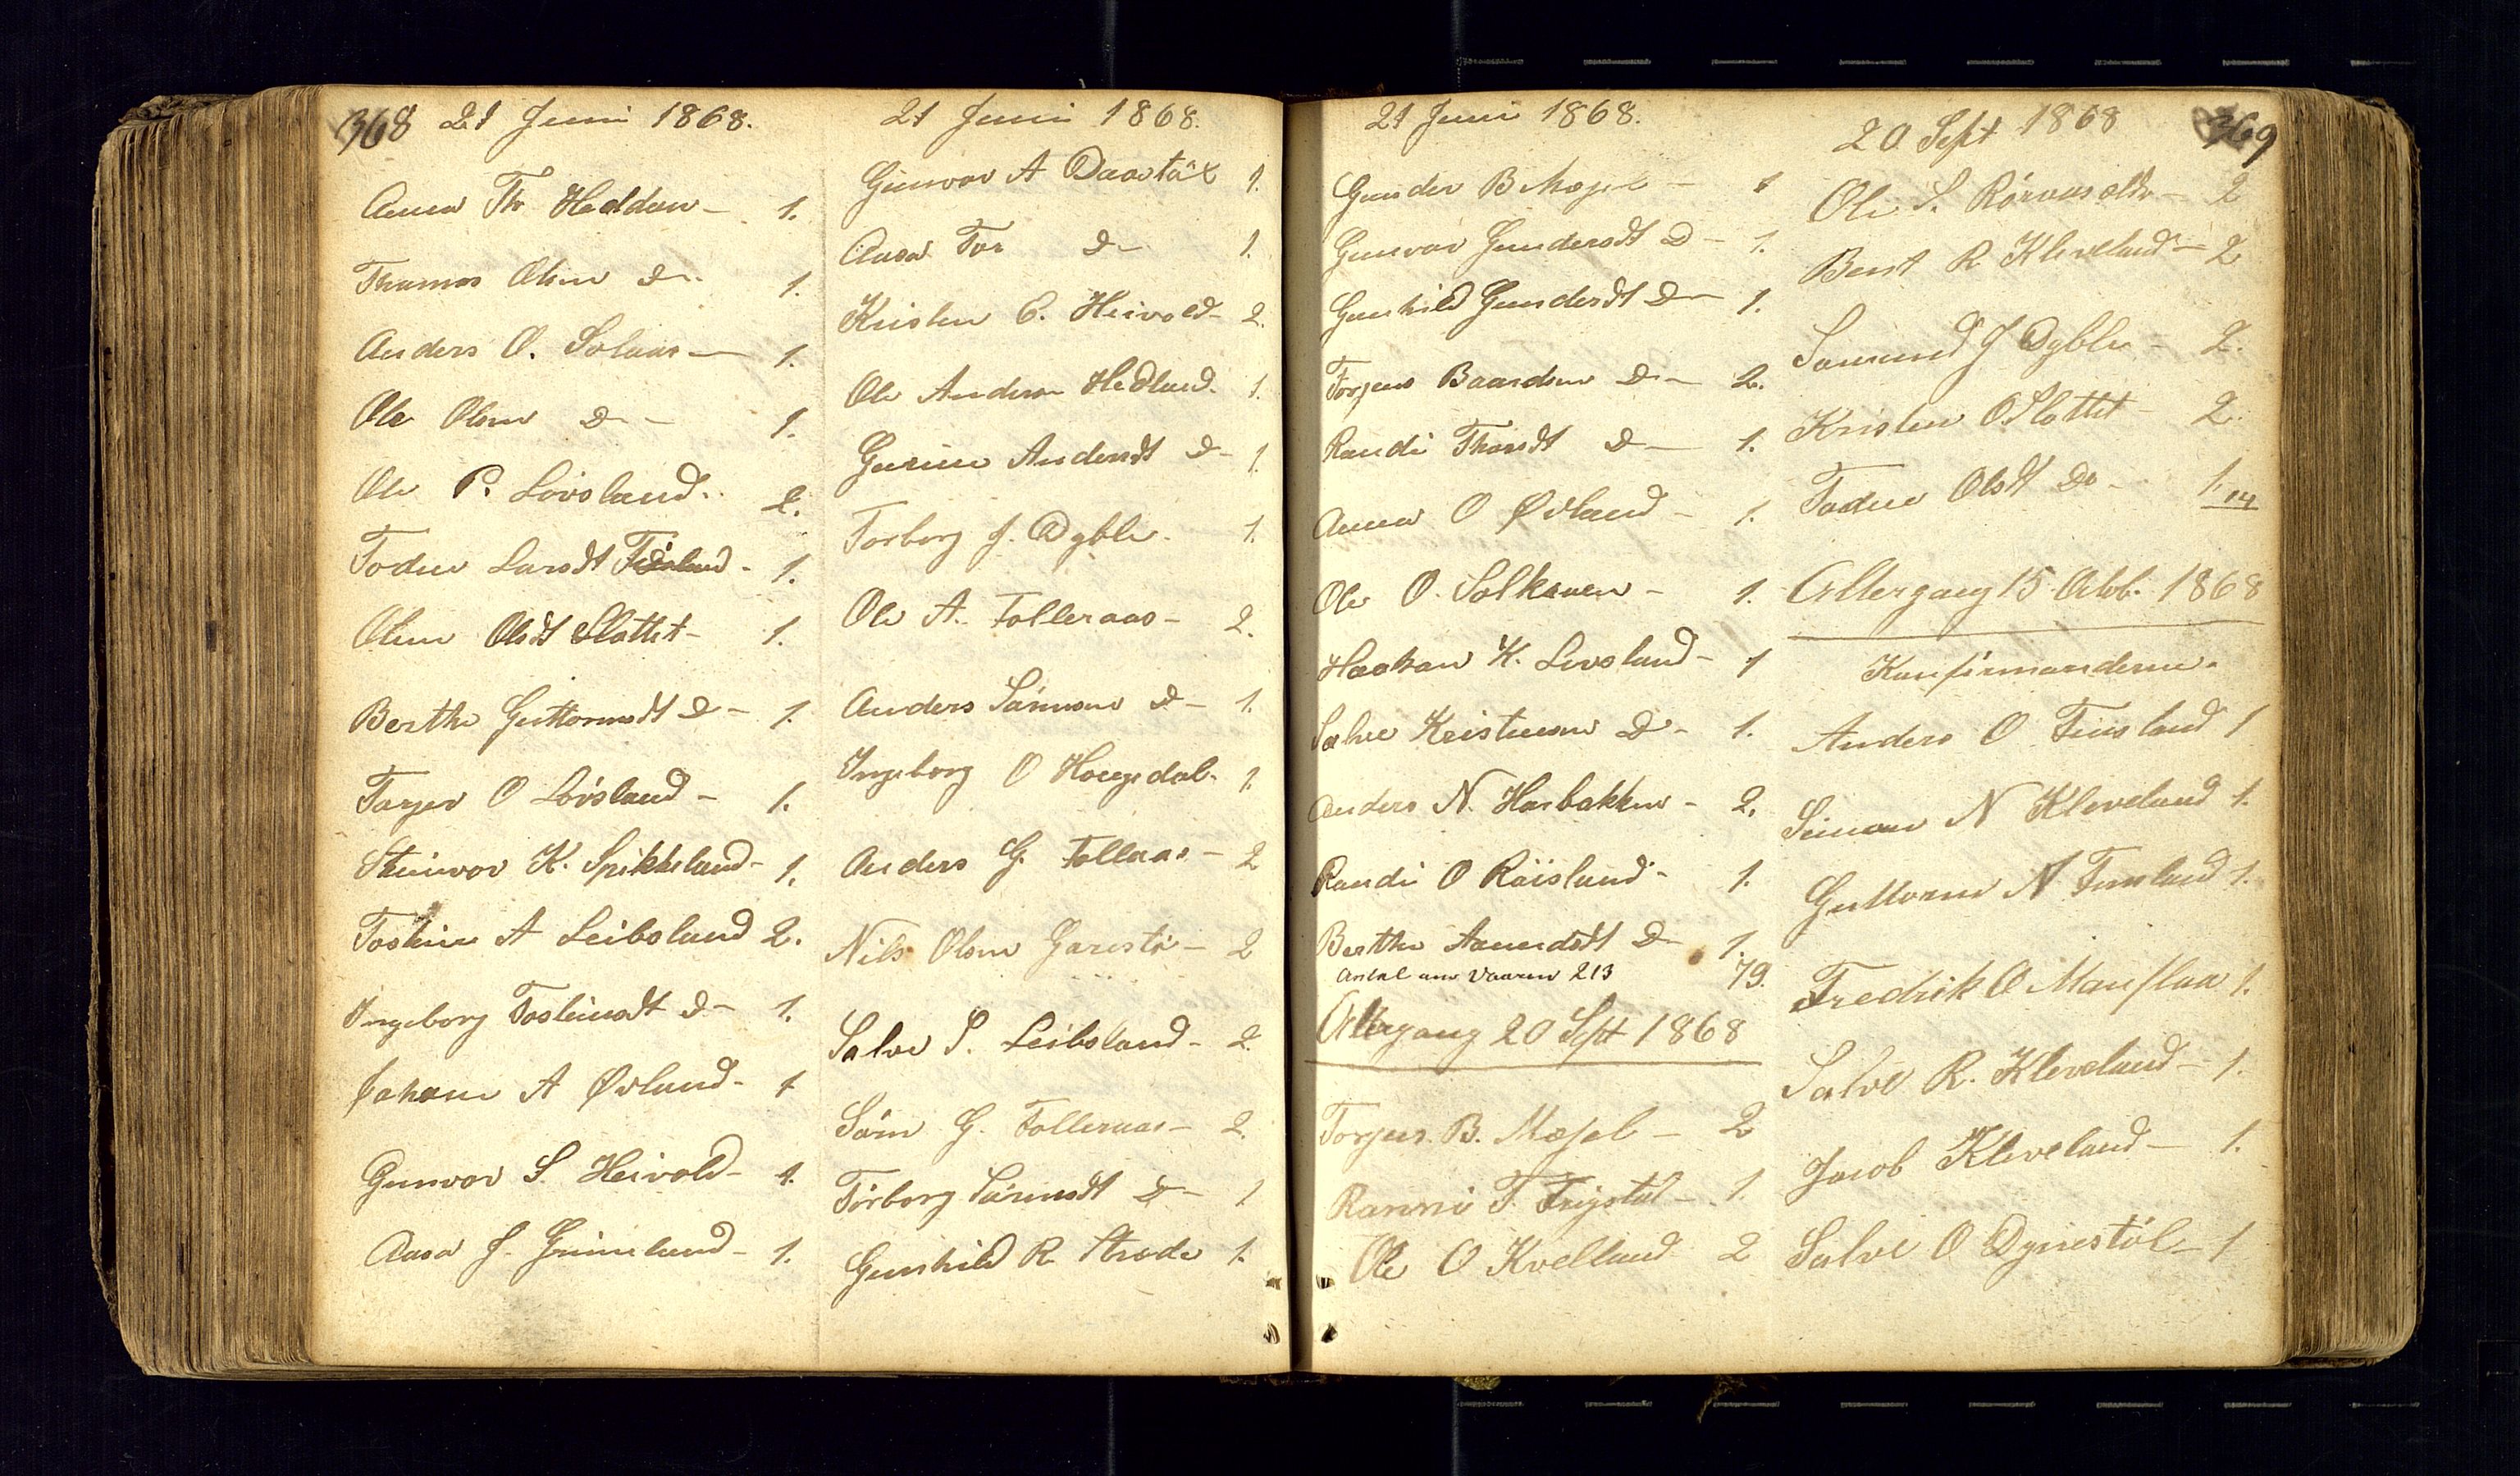 368 21 Juni 1868.
Anna Th Heddan - 1.
Thomas Olsen D - 1.
Anders O. Solaas - 1.
Ole Olsen D - 1.
Ole P. Lövsland. 2.
Todne Larsdt Finsland - 1.
Oline Olsdt Slottet - 1.
Berthe Guttormsdt D - 1.
Tarjer O Lövsland - 1.
Steinvor K. Spikkeland - 1.
Toskim A Leibsland 2.
Ingeborg Tosteinsdt D - 1.
Johane A Øvland - 1
Gunvor S. Heivold - 1.
Aasa J. Grimeland - 1.
21 Juni 1868.
Gunvor A 1.
Aasa Tor D - 1.
Kristen C. Heivold - 2.
Ole Anderson Hedland. 1.
Gurine Andersdt D - 1.
Torborg J. Dyblie. 1.
Ole A. Tolleraas - 2.
Anders Sörenson D - 1.
Ingeborg O Hougsdal - 1.
Anders G. Tollraas - 2
Nils Olsen - 2
Salve S. Leibsland - 2.
Sörn G. Tolleraas - 2.
Törborg Sörensdt D - 1
Gunhild R. 1.
21 Juni 1868.
Gunder B Mosjel - 1
Gunvor Gundersdt D - 1.
Gunhild Gundersdt D - 1.
Torjus Baardsen D - 2.
Randi Thorsdt D - 1.
Anna O Øvland - 1.
Ole O. Solkaven - 1.
Haakon K. Lovsland - 1
Salve Kristenson D - 1.
Anders N. Harbakken - 2.
Randi O Röisland - 1.
Berthe Aanendsdt D - 1.
Antal om Vaaren 213 79.
Altergang 20 Sept 1868
Torjus B. Mosjel - 2
Ranni T. - 1.
Ole O Kvelland 2
20 Sept 1868 369
Ole S. - 2
Bent R Kleveland - 2
Samund J Dyblie - 2.
Kristen O. Slottet - 2.
Todne Olsdt Do - 1. 14
Altergang 15 Oktb. 1868
Konfirmanderne.
Anders O Finsland 1
Simon N Kleveland 1.
Guttorm N Finsland 1.
Fredrik O Monflaa 1.
Salve R. Kleveland - 1.
Jacob Kleveland - 1.
Salve O Dynestöl - 1